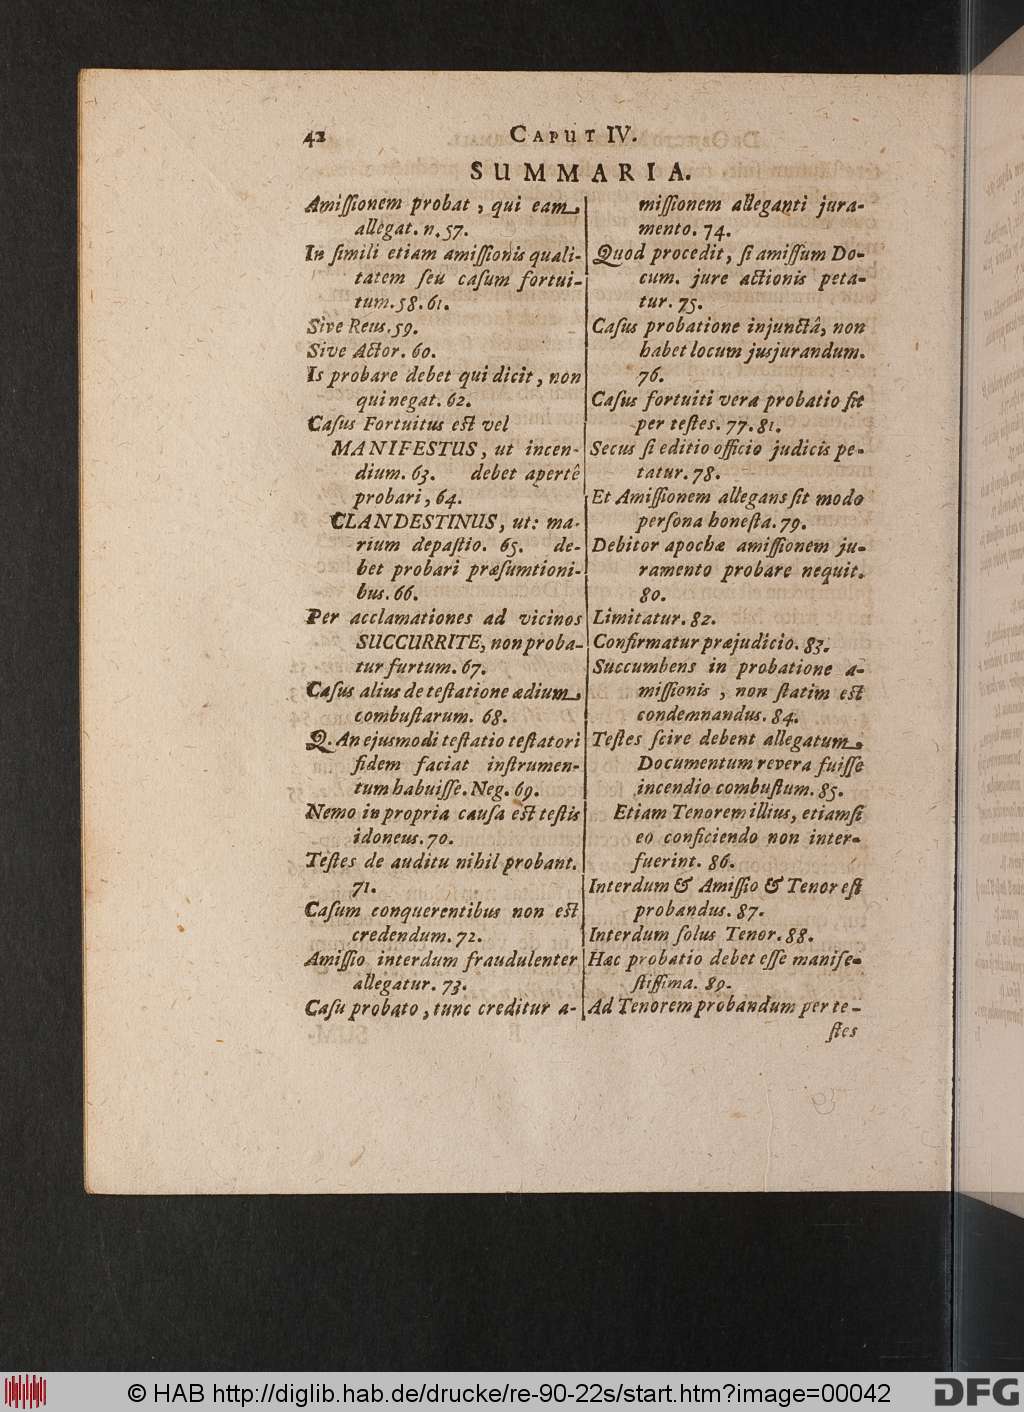 42
CAPUT IV.
SUMMARIA.
Amiſſionem probat, qui eam,
allegat. n. 57.
In ſimili etiam amiſſionis quali-
tatem ſeu caſum fortui-
tum. 58. 61.
Sive Reus. 59.
Sive Actor. 60.
Is probare debet qui dicit, non
qui negat. 62.
Caſus Fortuitus est vel
MANIFESTUS, ut incen-
dium. 63. debet apertê
probari, 64.
CLANDESTINUS, ut: ma-
rium depaſtio. 65. de-
bet probari præſumtioni-
bus. 66.
Per acclamationes ad vicinos
SUCCURRITE, non proba-
tur furtum. 67.
Caſus alius de teſtatione ædium,
combuſtarum. 68.
Q. An ejusmodi teſtatio teſtatori
fidem faciat inſtrumen-
tum habuiſſe. Neg. 69.
Nemo in propria cauſa est teſtis
idoneus. 70.
Teſtes de auditu nihil probant.
71.
Caſum conquerentibus non est
credendum. 72.
Amiſſio interdum fraudulenter
allegatur. 73.
Caſu probato, tunc creditur a-
miſſionem alleganti jura-
mento. 74.
Quod procedit, ſi amiſſum Do-
cum. jure actionis peta-
tur. 75.
Caſus probatione injunctâ, non
habet locum jusjurandum.
76.
Caſus fortuiti vera probatio fit
per teſtes. 77. 81.
Secus ſi editio officio judicis pe-
tatur. 78.
Et Amiſſionem allegans ſit modo
perſona honeſta. 79.
Debitor apochæ amiſſionem ju-
ramento probare nequit.
80.
Limitatur. 82.
Confirmatur præjudicio. 83.
Succumbens in probatione a-
miſſionis, non ſtatim est
condemnandus. 84.
Teſtes ſcire debent allegatum,
Documentum revera fuiſſe
incendio combuſtum. 85.
Etiam Tenorem illius, etiamſi
eo conficiendo non inter-
fuerint. 86.
Interdum & Amiſſio & Tenor eſt
probandus. 87.
Interdum ſolus Tenor. 88.
Hæc probatio debet eſſe manife-
ſtiſſima. 89.
Ad Tenorem probandum per te-
ſtes
© HAB http://diglib.hab.de/drucke/re-90-22s/start.htm?image=00042
DFG